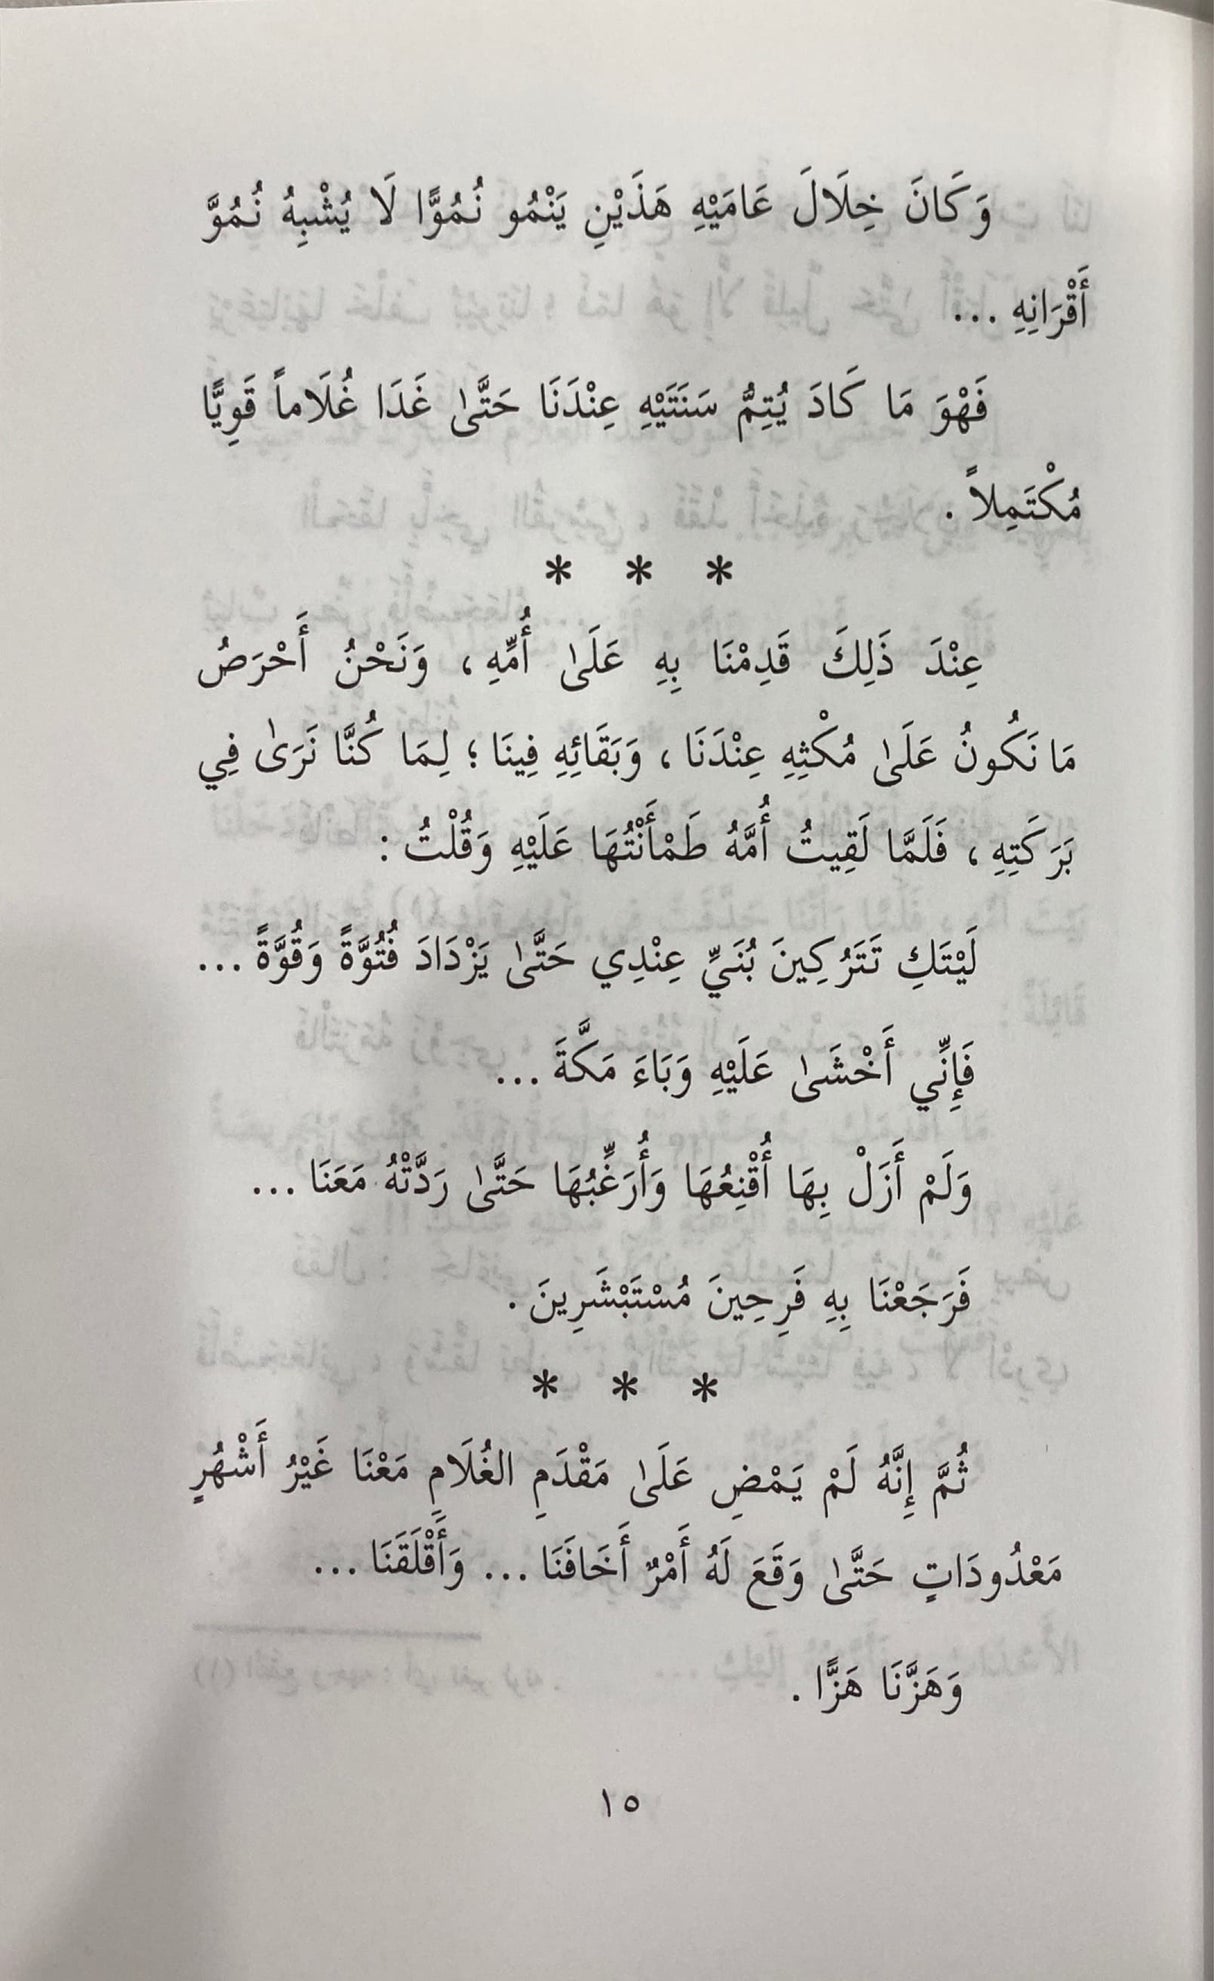 وَكَانَ خِلَالَ عَامَيْهِ هَذَيْنِ يَنْمُو نُمُوًّا لَا يُشْبِهُ نُمُوَّ
أَقْرَانِهِ ...
فَهْوَ مَا كَادَ يُتِمُّ سَنَتَيْهِ عِنْدَنَا حَتَّىٰ غَدَا غُلَاماً قَوِيًّا
مُكْتَمِلاً .
* * *
عِنْدَ ذَلِكَ قَدِمْنَا بِهِ عَلَىٰ أُمِّهِ ، وَنَحْنُ أَحْرَصُ
مَا نَكُونُ عَلَىٰ مُكْثِهِ عِنْدَنَا ، وَبَقَائِهِ فِينَا ؛ لِمَا كُنَّا نَرَىٰ فِي
بَرَكَتِهِ ، فَلَمَّا لَقِيتُ أُمَّهُ طَمْأَنْتُهَا عَلَيْهِ وَقُلْتُ :
لَيْتَكِ تَتَرُكِينَ بُنَيِّ عِنْدِي حَتَّىٰ يَزْدَادَ فُتُوَّةً وَقُوَّةً ...
فَإِنِّي أَخْشَىٰ عَلَيْهِ وَبَاءَ مَكَّةَ ...
وَلَمْ أَزَلْ بِهَا أُقْنِعُهَا وَأُرَغِّبُهَا حَتَّىٰ رَدَّتْهُ مَعَنَا ...
فَرَجَعْنَا بِهِ فَرِحِينَ مُسْتَبْشَرِينَ .
* * *
ثُمَّ إِنَّهُ لَمْ يَمْضِ عَلَىٰ مَقْدَمِ الغُلَامِ مَعْنَا غَيْرُ أَشْهُرٍ
مَعْدُودَاتٍ حَتَّىٰ وَقَعَ لَهُ أَمْرٌ أَخَافَنَا ... وَأَقْلَقَنَا ...
وَهَزَّنَا هَزًّا .
١٥